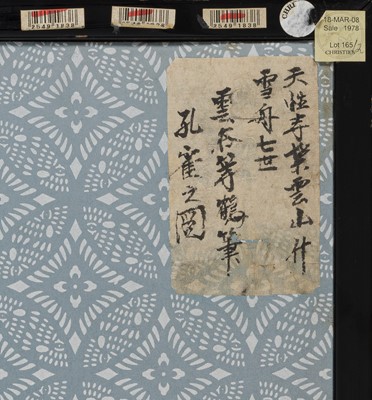 2549 1838
2549 1838
2549 1838
18-MAR-08
Sale : 1978
Lot 165/2
CHRISTIE'S
天性寺業雲山什
雪舟七世
雲谷等鶴筆
孔雀之圖